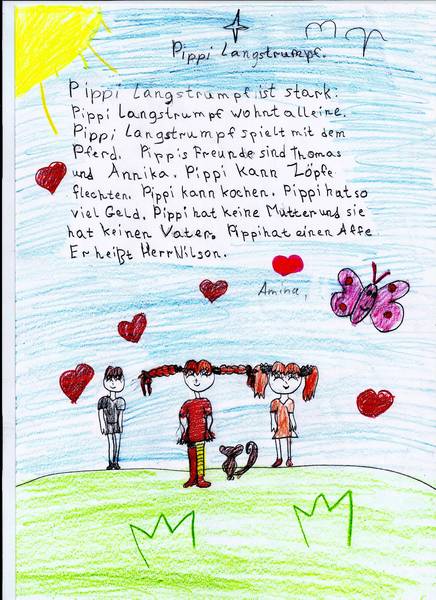 Pippi Langstrumpf.
Pippi Langstrumpf ist stark:
Pippi Langstrumpf wohnt alleine.
Pippi Langstrumpf spielt mit dem
Pferd. Pippis Freunde sind Thomas
und Annika. Pippi kann Zöpfe
flechten. Pippi kann kochen. Pippi hat so
viel Geld. Pippi hat keine Mutter und sie
hat keinen Vater. Pippi hat einen Affe
Er heißt Herr Nilson.
Amina,